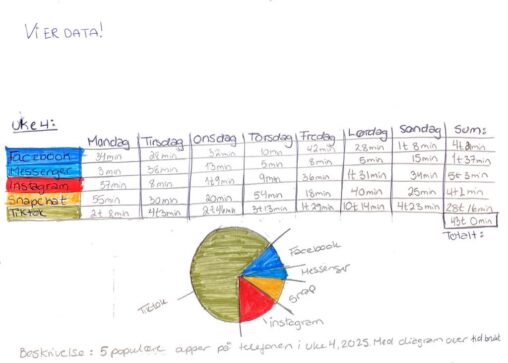 VI ER DATA!
Uke 4:
Mandag Tirsdag Onsdag Torsdag Fredag Lørdag Søndag Sum:
Facebook 34min 28min 32min 10min 42min 28min 1t 8min
Messenger 3min 38min 13min 5min 8min 5min 15min 1t37min
Instagram 57min 8min 9min 36min 1t31min 34min 5t3min
Snapchat 55min 30min 20min 54min 18min 40min 25min 4t1min
Tiktok 2t 8min 4t3min 3t13min 1t29min 10t14min 4t23min 28t16min
43t 0min
Totalt:
Facebook
Messenger
Snap
Tiktok
instagram
Beskrivelse: 5 populære apper på telefonen i uke 4, 2025. Med diagram over tid brukt